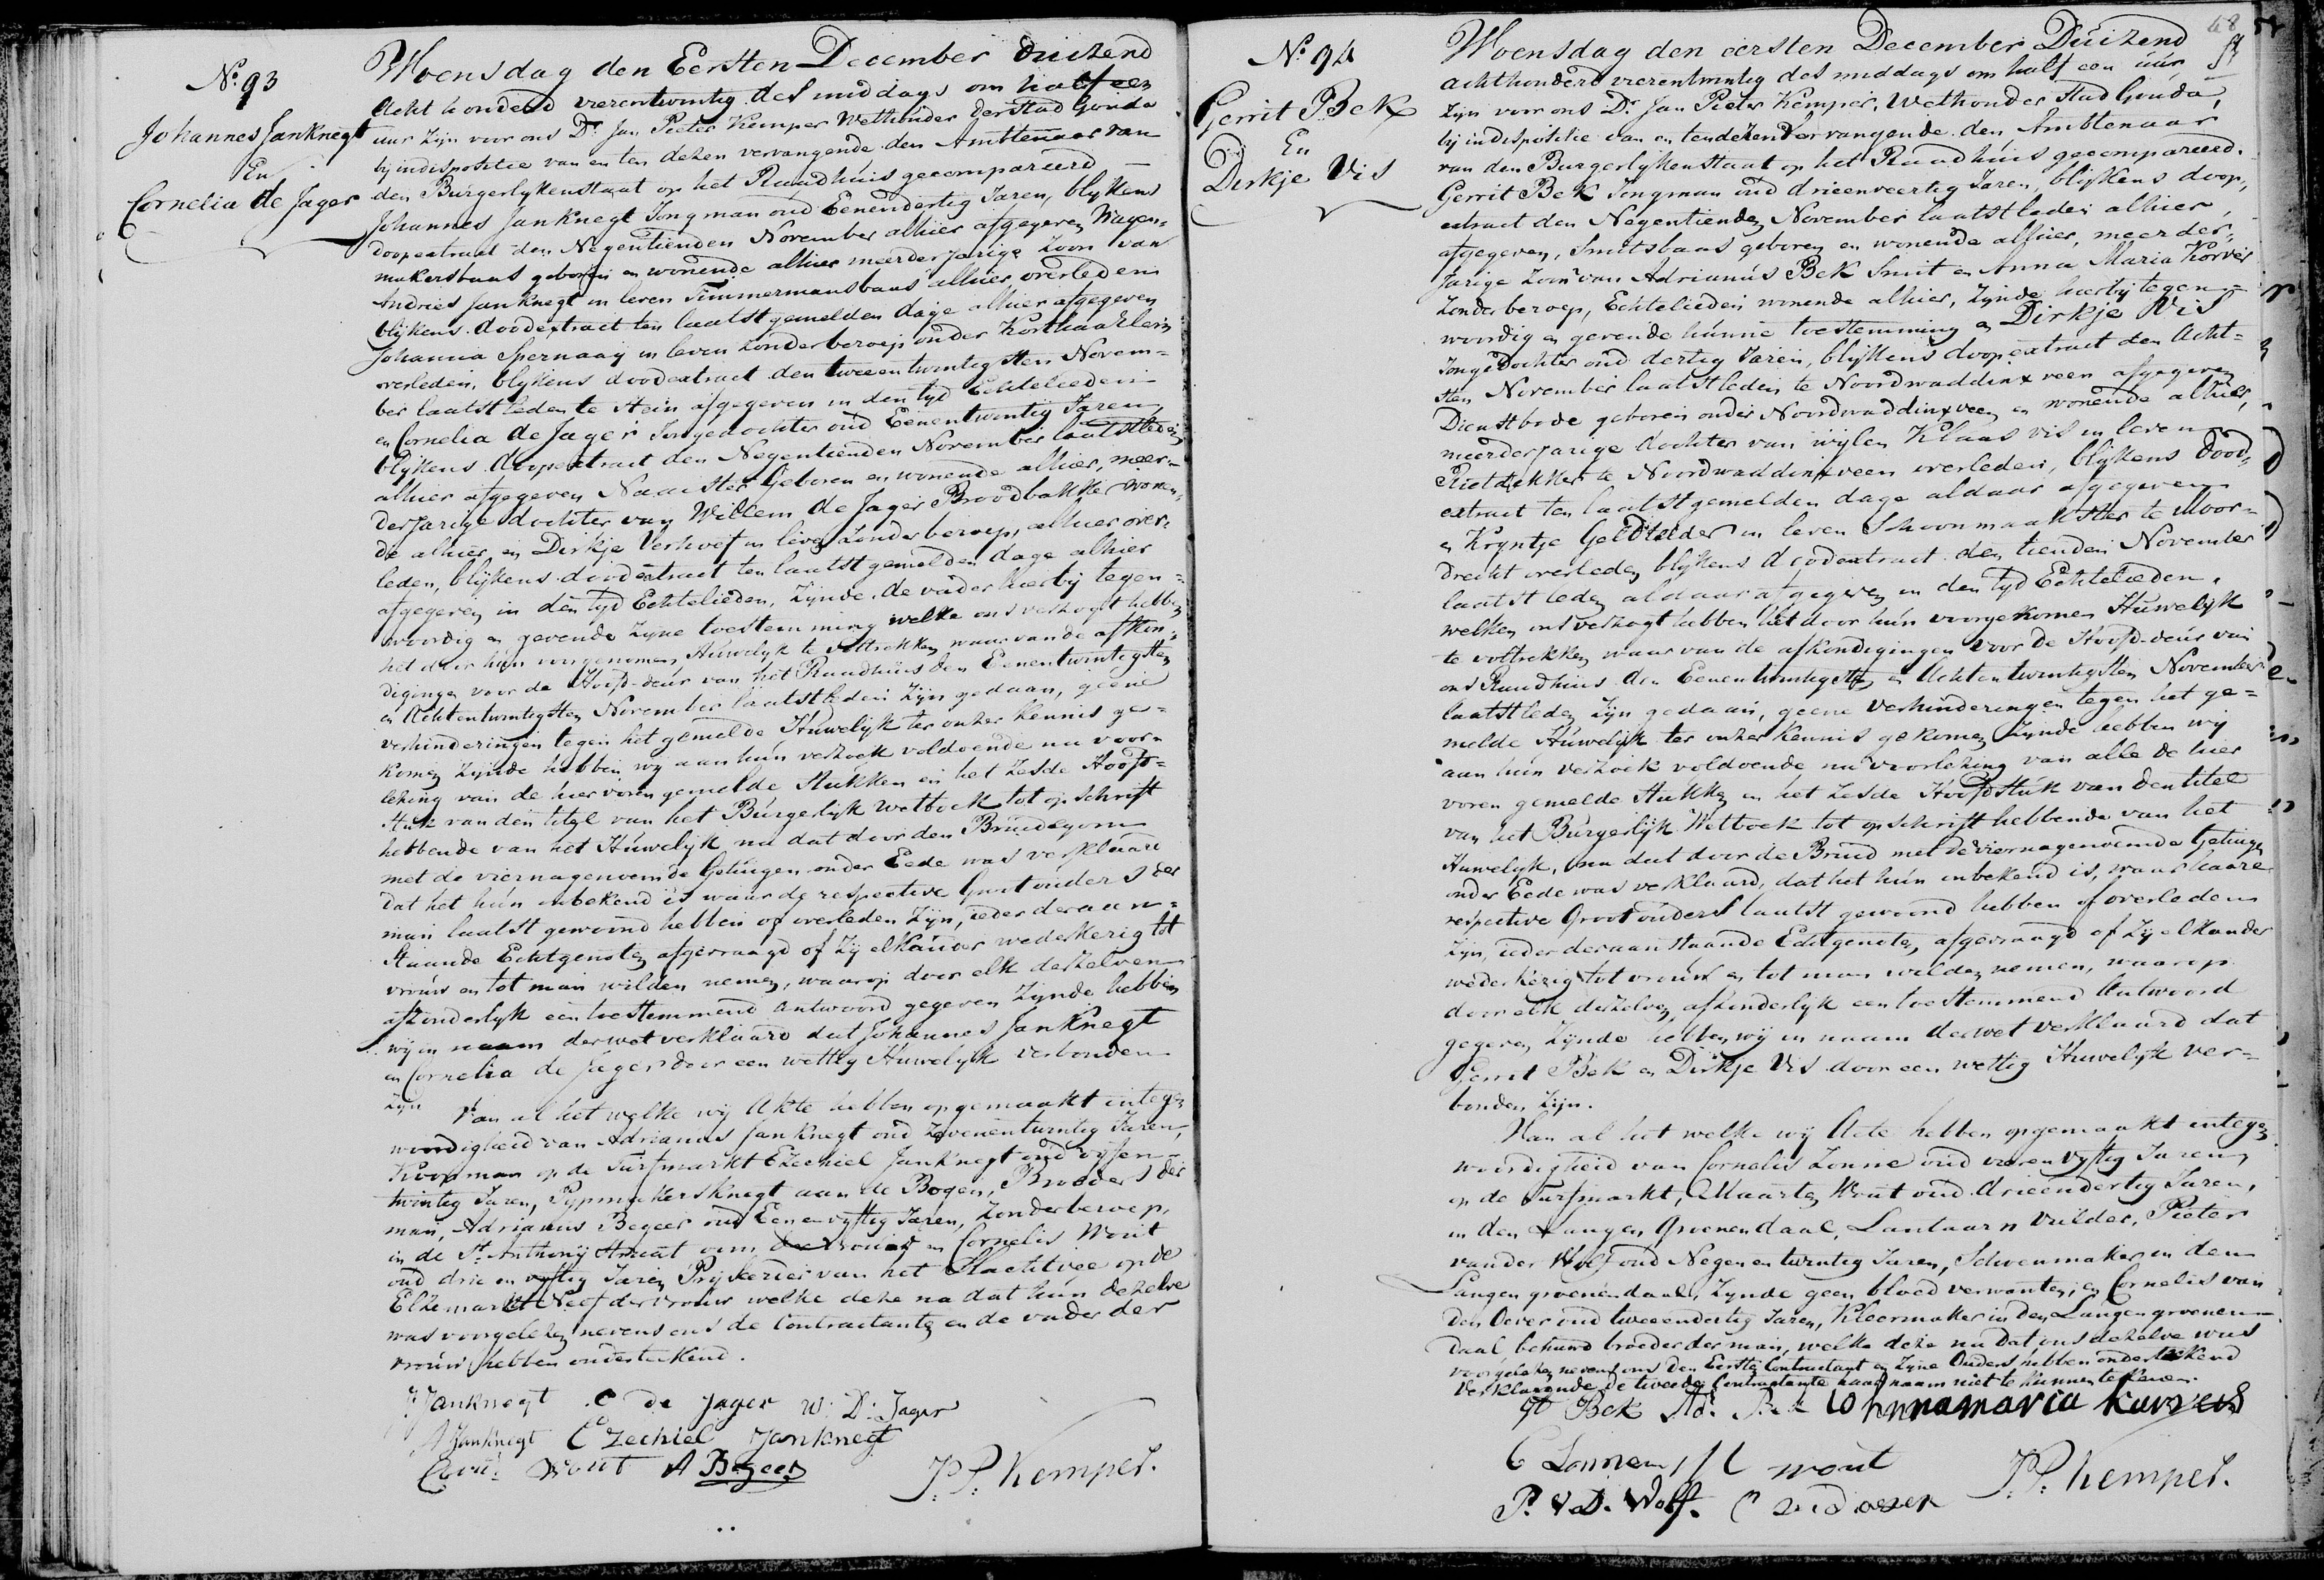 No. 93
Johannes Janknegt
En
Cornelia de Jager
Woensdag den Eersten December duizend
Acht honderd vierentwintig des middags om half een
uur zijn voor ons Dr. Jan Pieter Kemper Wethouder der Stad Gouda
bij indispositie van en ten dezen vervangende den Ambtenaar van
den Burgerlykenstaat op het Raadhuis gecompareerd
Johannes Janknegt Jongman oud Eenendertig Jaren, blykens
doopextract den Negentienden November alhier afgegeven Wagen-
makersbaas geboren en wonende alhier meerderjarige zoon van
Andries Janknegt in leven Timmermansbaas alhier overleden
blijkens doodextract ten laatstgemelden dage alhier afgegeven
Johanna Spernaaij in leven zonder beroep onder Korthaarlem
overleden, blykens doodextract den tweeentwintigsten Novem-
ber laatstleden te Stein afgegeven in den tyd Echtelieden
en Cornelia de Jager Jongedochter oud Eenentwintig Jaren
blijkens doopextract den Negentienden November laatstleden
alhier afgegeven Naaister Geboren en wonende alhier, meer-
derjarige dochter van Willem de Jager Broodbakker wonen-
de alhier en Dirkje Verhoef in leven zonder beroep, alhier over-
leden, blijkens doodextract ten laatstgemelden dage alhier
afgegeven in den tyd Echtelieden, zynde de vader hierbij tegen-
woordig en gevende zyne toestemming welke ons verzogt hebben
het door hun voorgenomen Huwelyk te voltrekken waarvan de afkon-
digingen voor de Hoofd-deur van het Raadhuis den Eenentwintigsten
en Achtentwintigsten November laatstleden Zyn gedaan, geene
verhinderingen tegen het gemelde Huwelyk ter onzer kennis ge-
komen zynde hebben wy aan hun verzoek voldoende na voor-
lezing van de hiervoren gemelde Stukken en het zesde Hoofd-
stuk van den titel van het Burgerlyk Wetboek tot opschrift
hebbende van het Huwelyk na dat door den Bruidegom
met de viernagenoemde Getuigen onder Eede was verklaard
dat het hun onbekend is waar de respective Grootouders der
man laatst gewoond hebben of overleden zyn, ieder der aan-
staande Echtgenoten afgevraagd of zy elkander wederkerig tot
vrouw en tot man wilden nemen, waarop door elk derzelven
afzonderlyk een toestemmend antwoord gegeven zynde hebben
wy in naam der wet verklaard dat Johannes Janknegt
en Cornelia de Jager door een wettig Huwelyk verbonden
zyn
Van al het welke wij Akte hebben opgemaakt in tegen
woordigheid van Adrianus Janknegt oud Zevenentwintig Jaren,
Koopman op de Turfmarkt Ezechiel Janknegt oud vijfen-
twintig Jaren, Pypmakersknegt aan de Bogen, Broeders der
man, Adrianus Begeer oud Eenenvyftig Jaren, zonder beroep,
in de St. Anthonij Straat oom der vrouw en Cornelis Wout
oud drie en vyftig Jaren Prijseerder van het Slachtvee op de
Elzemarkt Neef der vrouw welke deze na dat hun dezelve
was voorgelezen nevens ons de Contractanten en de vader der
vrouw hebben ondertekend.
J. Janknegt C de Jager W: D: Jager
A Janknegt Ezechiel Janknegt
Corn: Wout A Begeer J. P. Kemper.
48
No. 94
Gerrit Bek
En
Dirkje Vis
Woensdag den eersten December Duizend
achthonderd vierentwintig des middags om half een uur
Zyn voor ons Dr. Jan Pieter Kemper, Wethouder Stad Gouda,
bij indispositie van en ten dezen vervangende den Ambtenaar
van den Burgerlykenstaat op het Raadhuis gecompareerd.
Gerrit Bek Jongman oud drieenveertig Jaren, blijkens doop-
extract den Negentienden November laatstleden alhier,
afgegeven, Smitsbaas geboren en wonende alhier, meerder-
jarige Zoon van Adrianus Bek Smit en Anna Maria Korver
zonder beroep, Echtelieden wonende alhier, Zynde hierbij tegen-
woordig en gevende hunne toestemming en Dirkje Vis
Jongedochter oud dertig Jaren, blijkens doopextract den Acht-
sten November laatstleden te Noordwaddinxveen afgegeven
Dienstbode geboren onder Noordwaddinxveen en wonende alhier,
meerderjarige dochter van wijlen Klaas Vis in leven
Rietdekker te Noordwaddinxveen overleden, blijkens dood-
extract ten laatstgemelden dage aldaar afgegeven
en Kryntje Geldtelder in leven Schoonmaakster te Moor-
drecht overleden blijkens doodextract den tienden November
laatstleden aldaar afgegeven in den tyd Echtelieden,
welken ons verzogt hebben het door hun voorgekomen Huwelyk
te voltrekken waarvan de afkondigingen voor de Hoofd-deur van
ons Raadhuis den Eenentwintigsten en Achtentwintigsten November
laatstleden Zyn gedaan, geene verhinderingen tegen het ge-
melde Huwelijk ter onzer kennis gekomen zynde hebben wij
aan hun verzoek voldoende na voorlezing van alle de hier
voren gemelde Stukken en het zesde Hoofdstuk van den titel
van het Burgerlijk Wetboek tot opschrift hebbende van het
Huwelyk, na dat door de Bruid met de viernagenoemde Getuigen
onder Eede was verklaard, dat het hun onbekend is, waar haare
respective Grootouders laatst gewoond hebben of overleden
zijn, ieder der aanstaande Echtgenoten, afgevraagd of zy elkander
wederkerig tot vrouw en tot man wilden nemen, waarop
door elk derzelven afzonderlyk een toestemmend Antwoord
gegeven zynde hebben wij in naam der wet verklaard dat
Gerrit Bek en Dirkje Vis door een wettig Huwelyk ver-
bonden zijn.
Van al het welke wij Acte hebben opgemaakt in tegen
woordigheid van Cornelis Zonne oud vierenvyftig Jaren
op de Turfmarkt, Maarten Wout oud drieendertig Jaren,
in den Langen Groenendaal, Lantaarn vulder, Pieter
van der Wolf oud Negenentwintig Jaren, Schoenmaker in den
Langen groenendaal, zynde geen bloed verwanten, en Cornelis van
den Oever oud tweeendertig Jaren, Kleermaker in den Langen groenen-
daal behuwd broeder der man, welke deze na dat ons dezelve was
voorgelezen nevens ons den Eersten Contractant en Zyne Ouders hebben ondertekend
Verklarende de tweede Contractante haar naam niet te kunnen tekenen.
G Bek Ad. Bek
C Sonne M wout
P. V D. Wolf. J. P. Kemper.